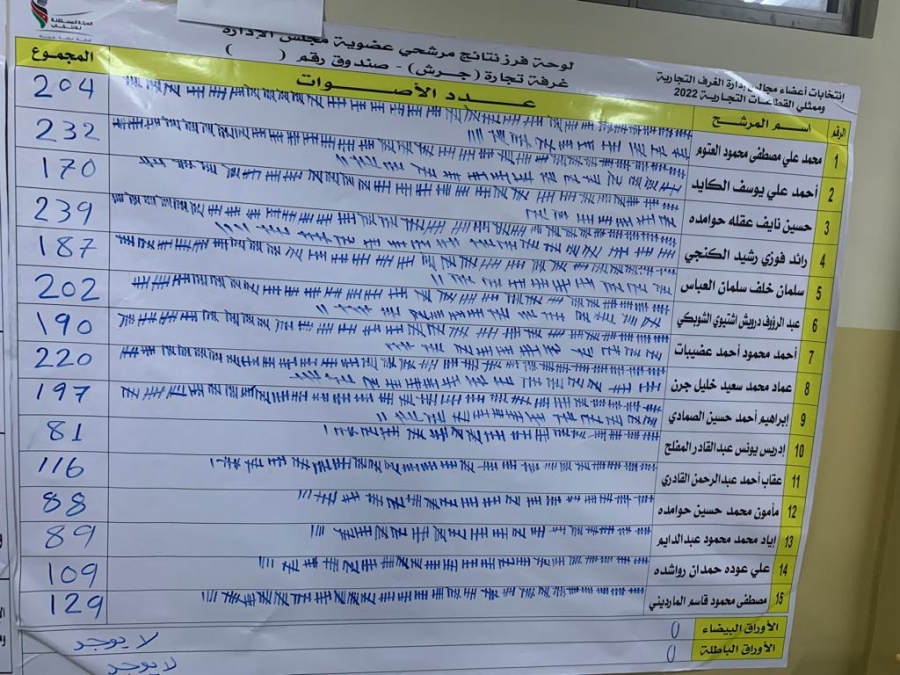 الهيئة المستقلة
للانتخاب
انتخابات أعضاء مجالس إدارة الغرف التجارية
وممثلي القطاعات التجارية 2022
لوحة فرز نتائج مرشحي عضوية مجلس الإدارة
غرفة تجارة (جرش) - صندوق رقم ( )
الرقم اسم المرشح عدد الأصوات المجموع
1 محمد علي مصطفى محمود العتوم 204
2 أحمد علي يوسف الكايد 232
3 حسين نايف عقله حوامده 170
4 رائد فوزي رشيد الكنجي 239
5 سلمان خلف سلمان العباس 187
6 عبد الرؤوف درويش اشتيوي الشوبكي 202
7 أحمد محمود أحمد عضيبات 190
8 عماد محمد سعيد خليل جرن 220
9 إبراهيم أحمد حسين الصمادي 197
10 إدريس يونس عبدالقادر المفلح 81
11 عقاب أحمد عبدالرحمن القادري 116
12 مأمون محمد حسين حوامده 88
13 إياد محمد محمود عبدالدايم 89
14 علي عوده حمدان رواشده 109
15 مصطفى محمود قاسم المارديني 129
الأوراق البيضاء 0 لا يوجد
الأوراق الباطلة 0 لا يوجد